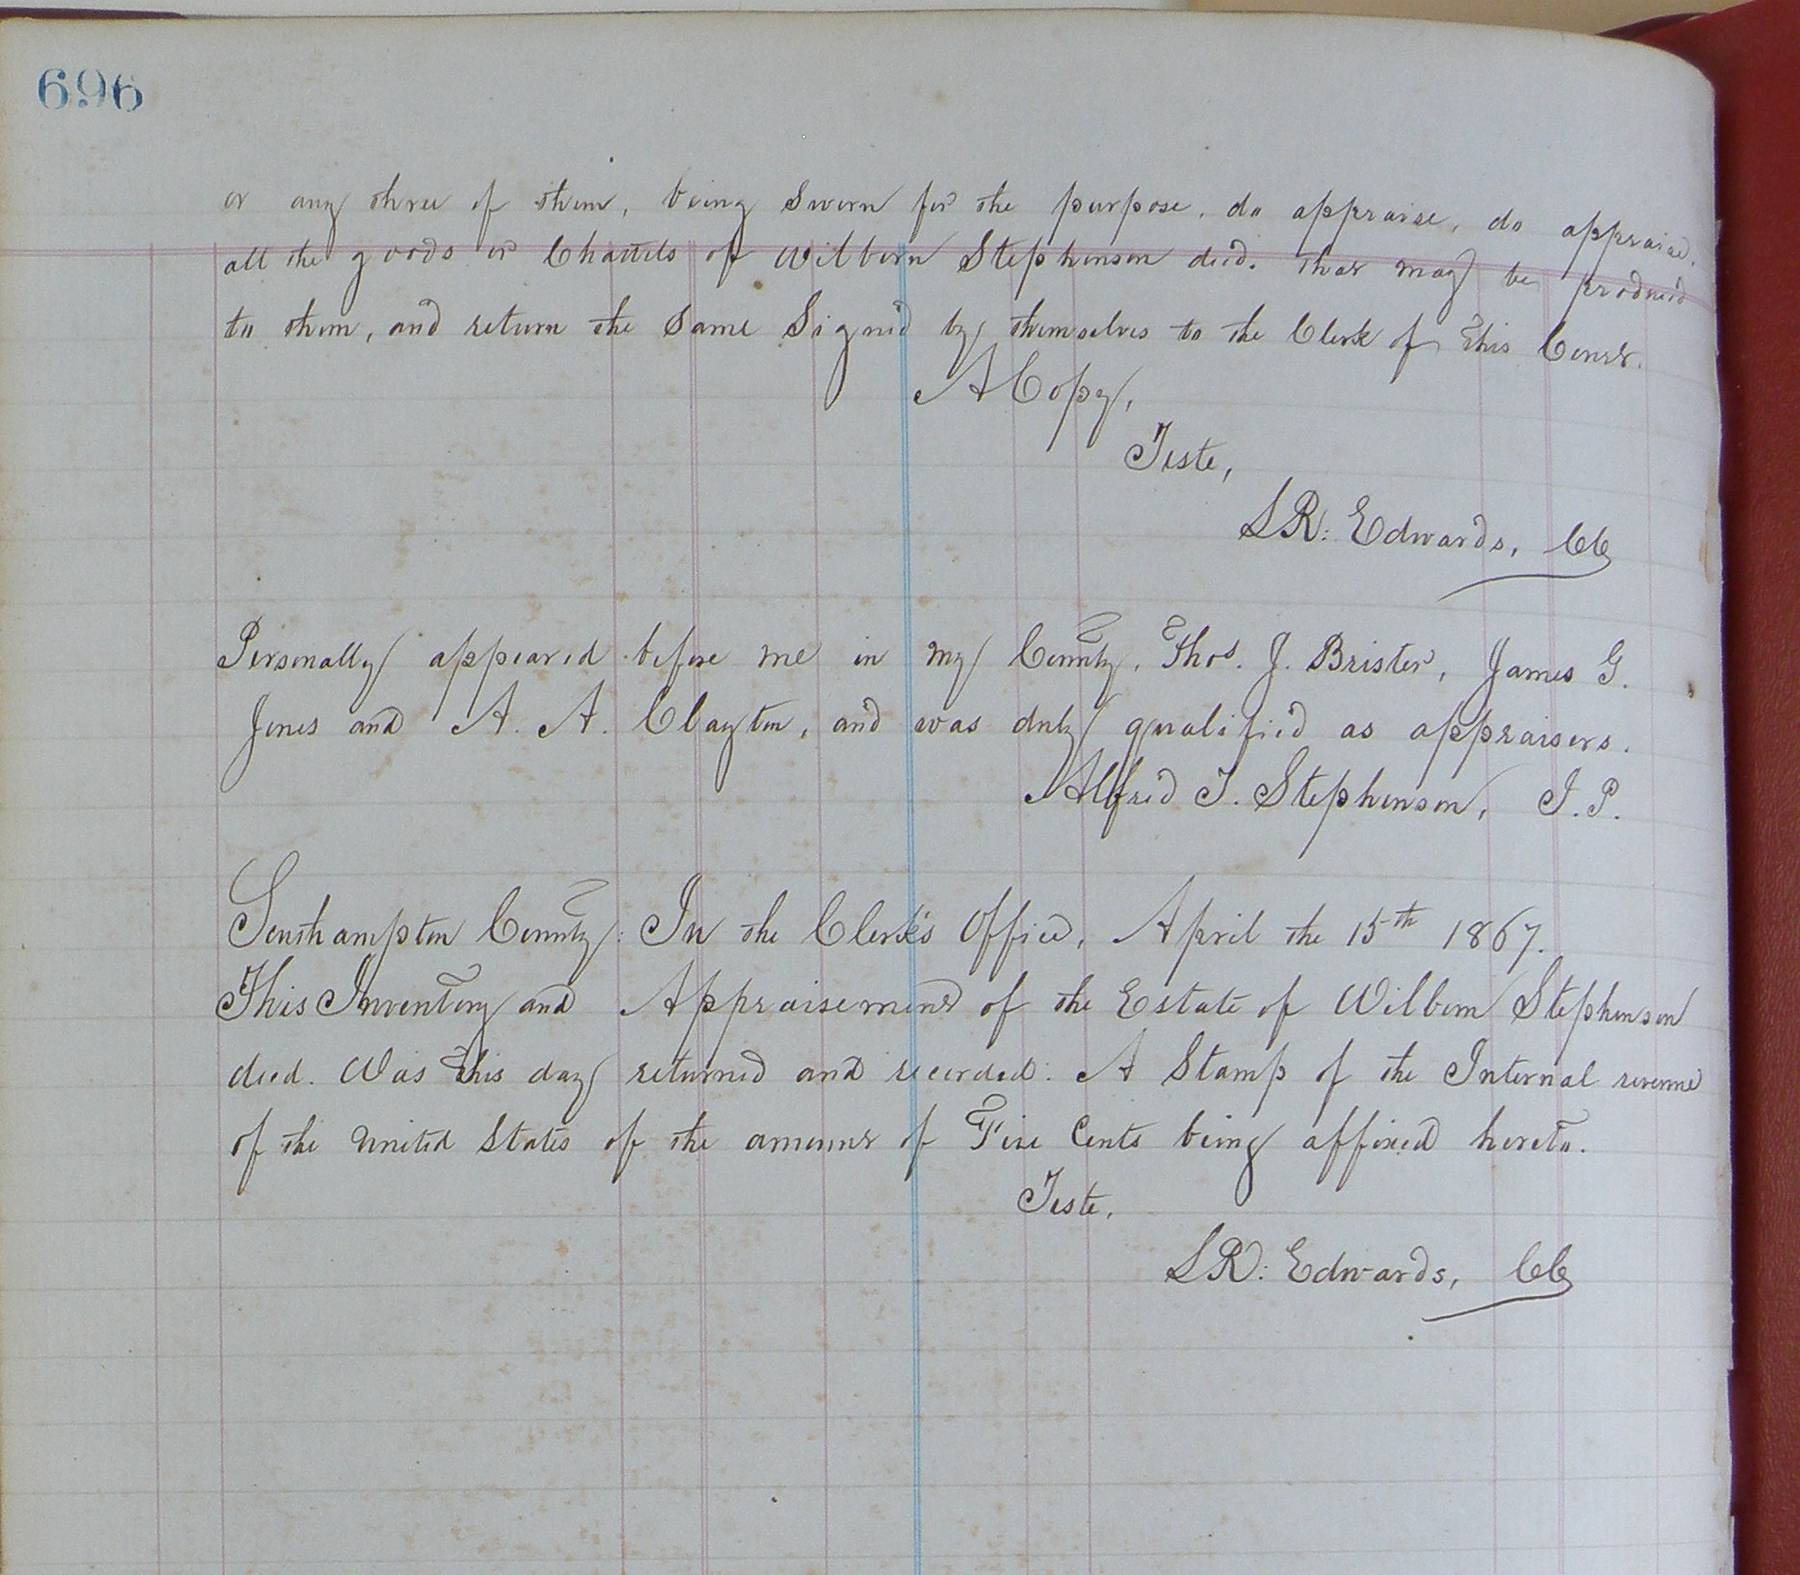 696
or any three of them, being Sworn for the purpose, do appraise, do appraise,
all the goods or Chattels of Wilborn Stephenson decd. that may be produced
to them, and return the Same Signed by themselves to the Clerk of this Court.
A Copy,
Teste,
LR: Edwards, CC
Personally appeared before me in my County, Thos. J. Brister, James G.
Jones and A. A. Clayton, and was duly qualified as appraisers.
Alfred T. Stephenson, J. P.
Southampton County: In the Clerk's Office, April the 15th 1867.
This Inventory and Appraisement of the Estate of Wilborn Stephenson
decd. Was this day returned and recorded: A Stamp of the Internal revenue
of the United States of the amount of Five Cents being affixed hereto.
Teste,
LR: Edwards, CC